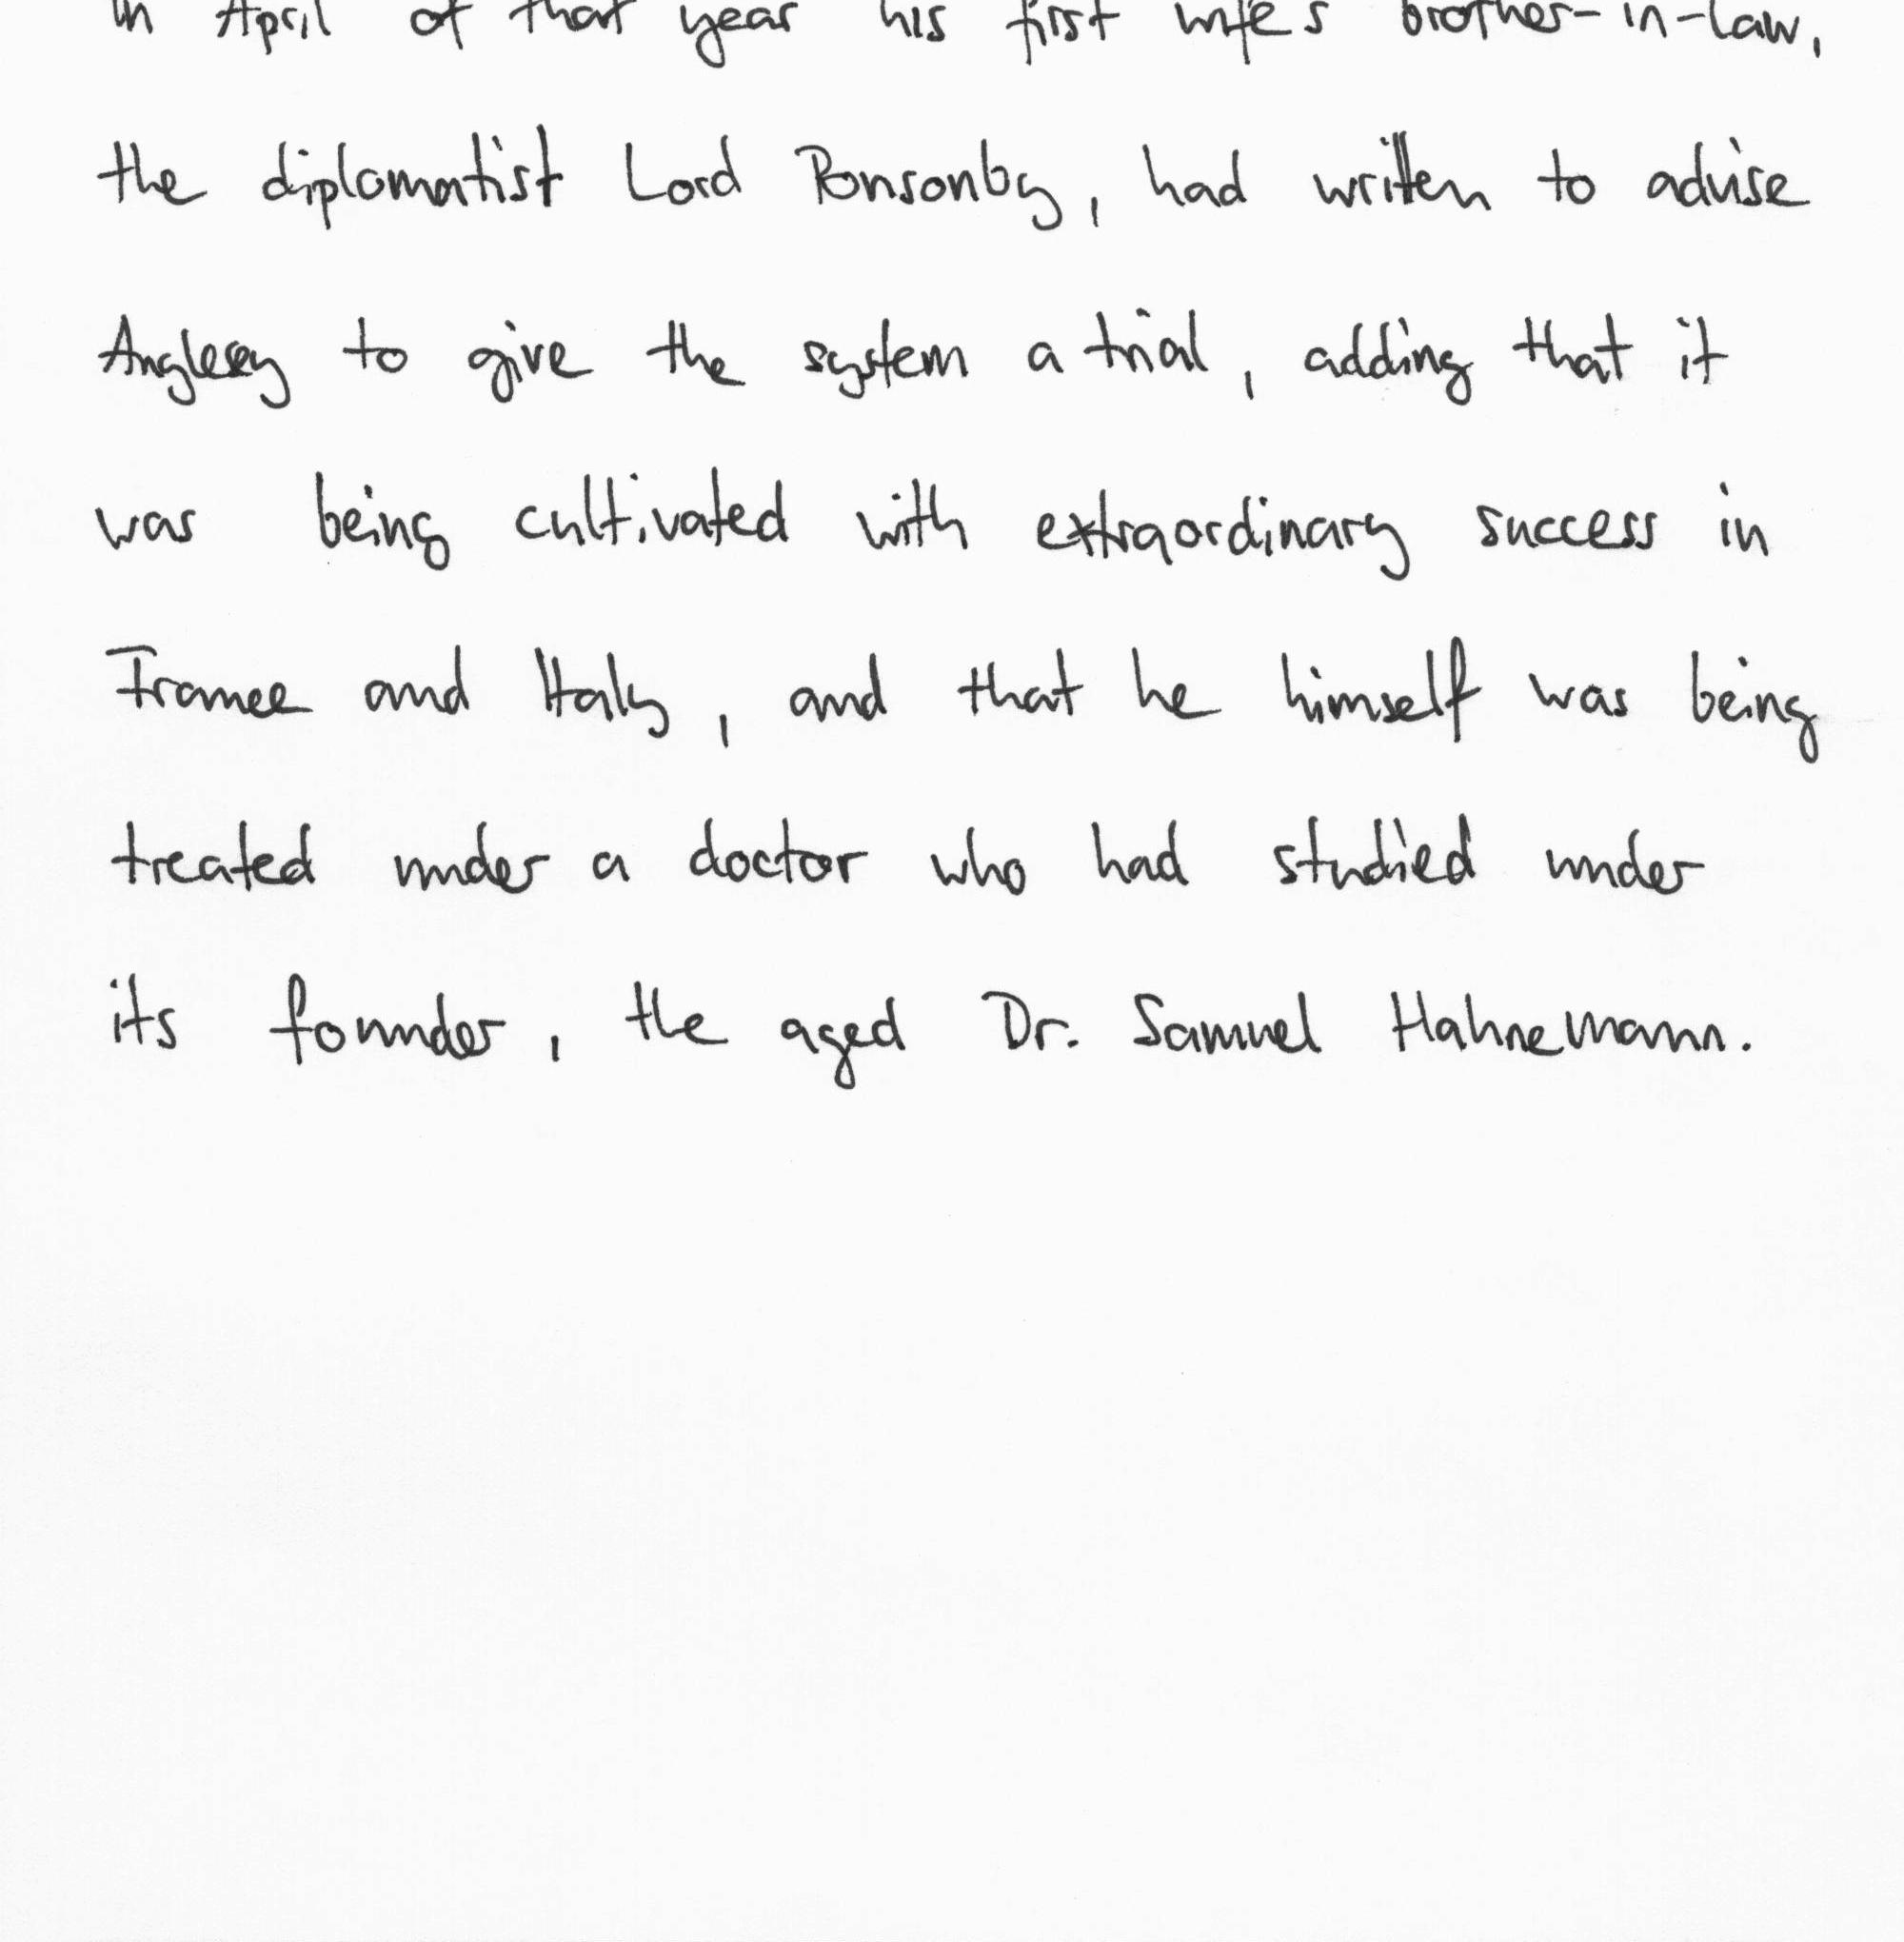 in April of that year his first wife's brother-in-law,
the diplomatist Lord Ponsonby, had written to advise
Anglesey to give the system a trial, adding that it
was being cultivated with extraordinary success in
France and Italy, and that he himself was being
treated under a doctor who had studied under
its founder, the aged Dr. Samuel Hahnemann.